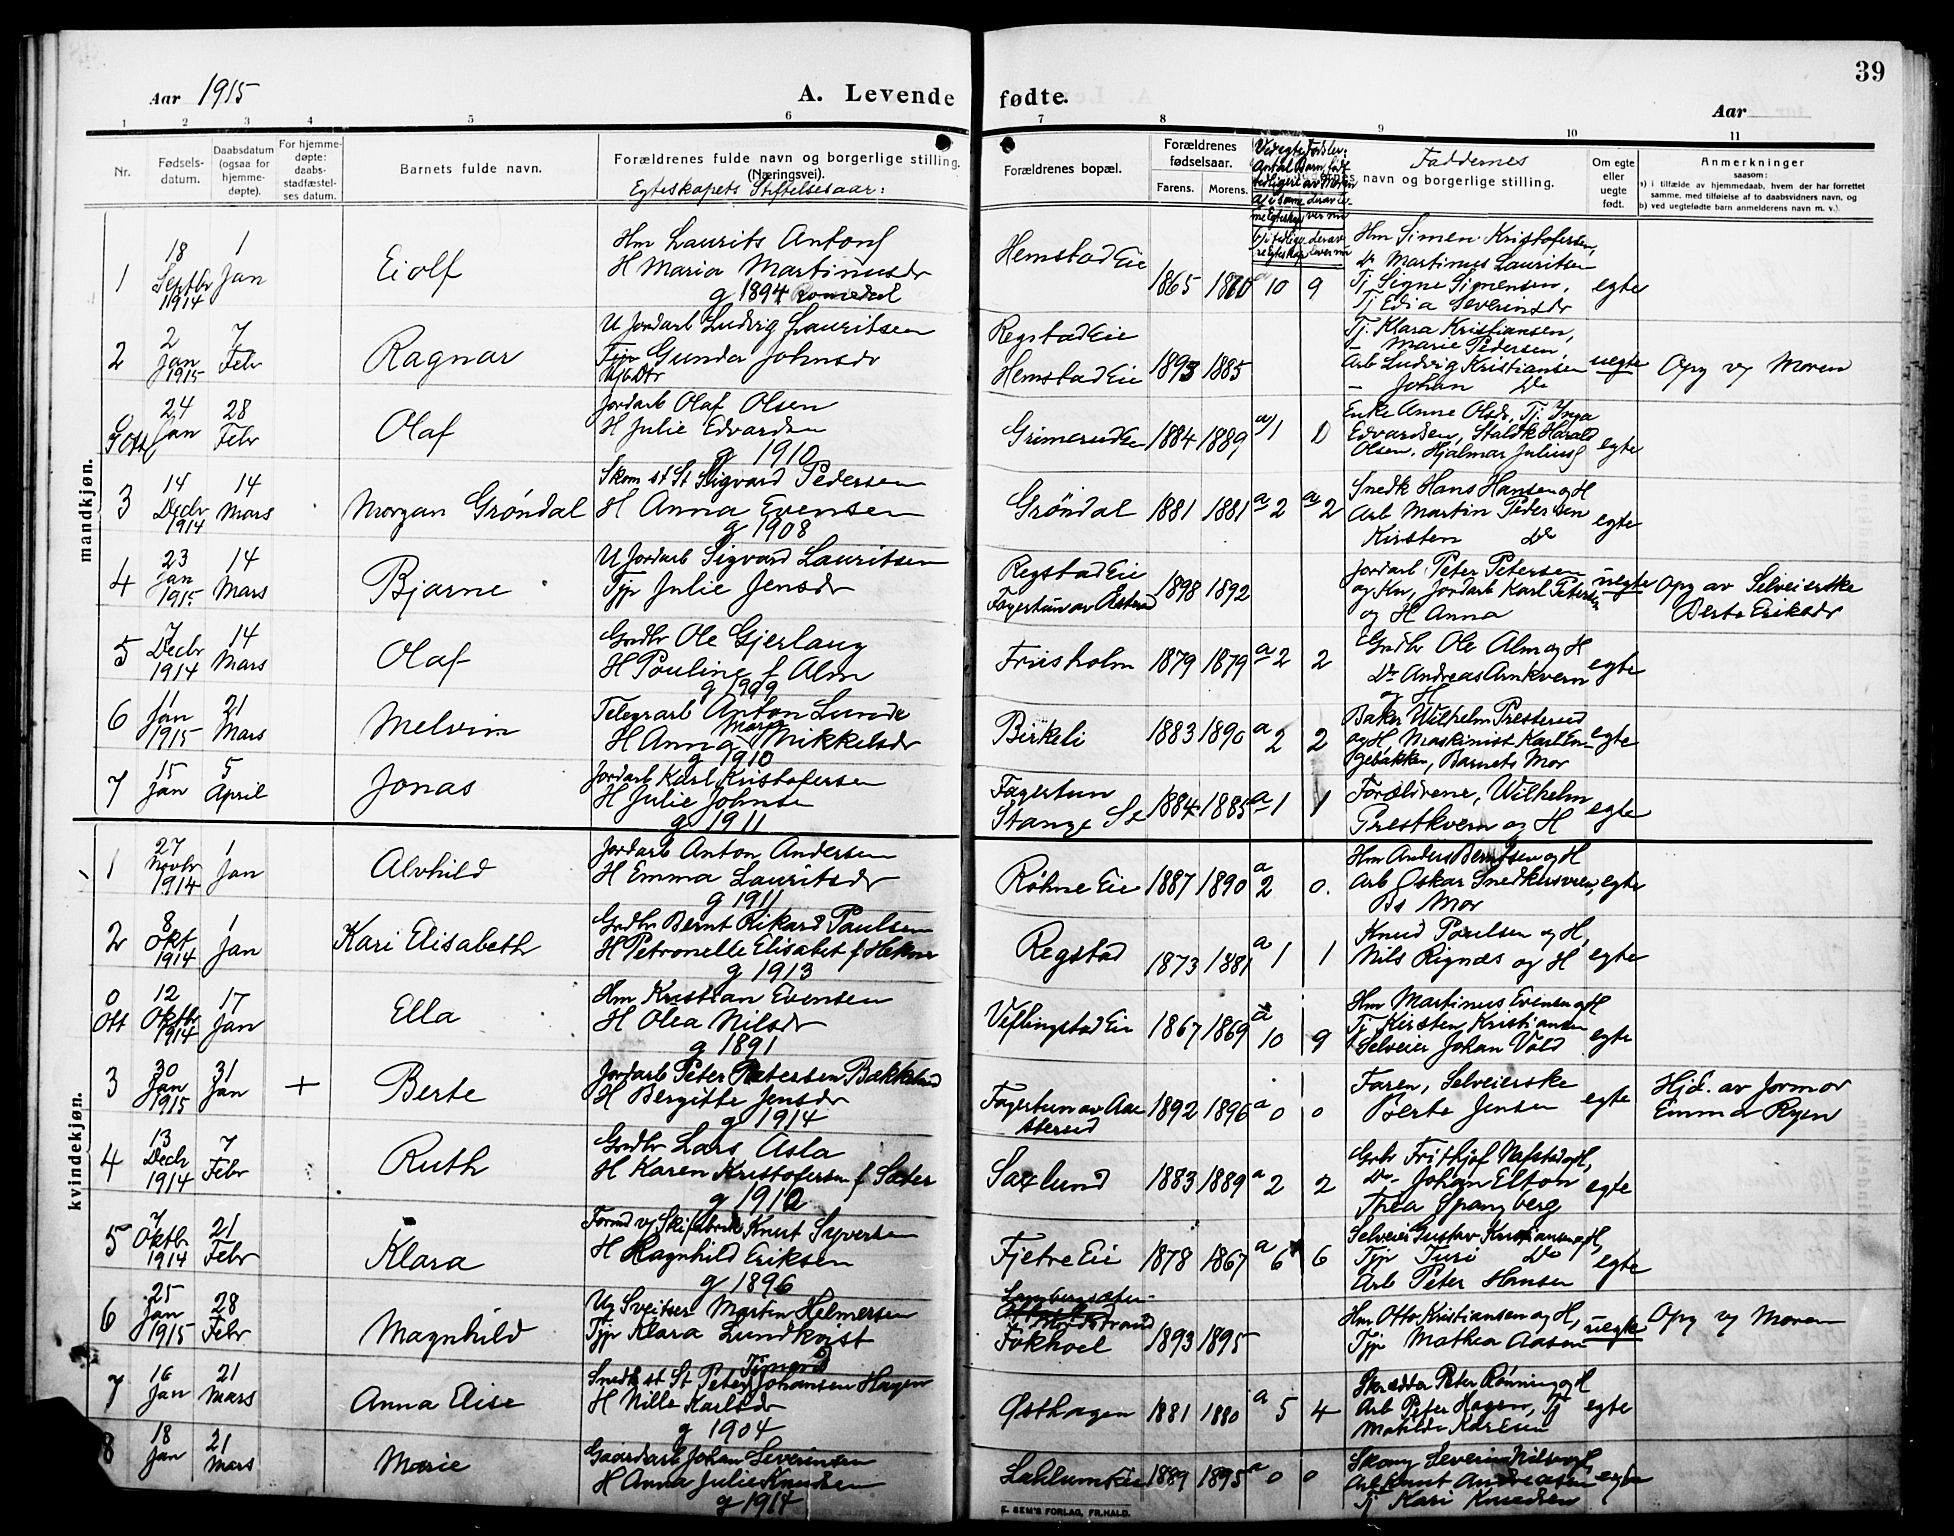 39
Aar 1915
A. Levende fødte.
Aar
1 2 3 4 5 6 7 8 9 10 11
Nr.
Fødsels-
datum.
Daabsdatum
(ogsaa for
hjemme-
døpte).
For hjemme-
døpte:
daabs-
stadfæstel-
ses datum.
Barnets fulde navn.
Forældrenes fulde navn og borgerlige stilling.
(Næringsvei).
Egteskapets Stiftelsesaar:
Forældrenes bopæl.
Forældrenes
fødselsaar.
Farens. Morens.
Faddernes
navn og borgerlige stilling.
Om egte
eller
uegte
født.
Anmerkninger
saasom:
a) i tilfælde av hjemmedaab, hvem der har forrettet
samme, med tilføielse af to daabsvidners navn, og
b) ved uegtefødte barn anmelderens navn m. v.).
mandkjøn.
1
18 Septbr 1914
1 Jan
Eiolf
Hm Laurits Anton
H Maria Martinusdr
g 1894 Romedal
Hemstad Eie
1865 1870 a 10 9
Hm Simen Kristofersen,
Do Martinus Lauritsen
Tj Signe Simensen,
Tj Edia Severinsdr
egte
2
2 Jan 1915
7 Febr
Ragnar
U Jordarb Ludvig Lauritsen
Gunda Johnsdr
Regstad Eie
Hemstad Eie
1893 1885
Tj. Klara Kristiansen,
– Marie Pedersen,
Arb Ludvig Kristiansen
– Johan Do
uegte
Opg v Moren
24 Jan
28 Febr
Olaf
Jordarb Olaf Olsen
H Julie Edvardsen
g 1910
Grimerud Eie
1884 1889 a 1 0
Enke Anne Olsdr, Tj. Inga
Edvardsen, Staldk Harald
Olsen, Hjalmar Julius
egte
3
14 Decbr 1914
14 Mars
Morgan Grøndal
Skom st St Sigvard Pedersen
H Anna Evensen
g 1908
Grøndal
1881 1881 a 2 a 2
Snedk Hans Hansen og H
Arb Martin Pedersen
Kirsten Do
egte
4
23 Jan 1915
14 Mars
Bjarne
U Jordarb Sigvard Lauritsen
Tjp Julie Jensdr
Regstad Eie
Fagertun av Aasterud
1898 1892
Jordarb Peter Petersen
og Hu, Jordarb Karl Petersen
og H Anna
uegte
Opg av Selveierske
Berte Eriksdr
5
7 Decbr 1914
14 Mars
Olaf
Grdbr Ole Gjerlaug
H Pouline f Alm
g 1909
Friisholm
1879 1879 a 2 2
Grdbr Ole Alm og H
Do Andreas Arnkvern
og H
egte
6
11 Jan 1915
21 Mars
Melvin
Telegrarb Anton Lunde
H Anna Marie Mikkelsdr
g 1910
Birkeli
1883 1890 a 2 2
Baker Wilhelm Presterud
og H, Maskinist Karl En-
gebakken, Barnets Mor
egte
7
15 Jan
5 April
Jonas
Jordarb Karl Kristofersen
H Julie Johnsen
g 1911
Fagertun
Stange St
1884 1885 a 1 1
Forældrene, Wilhelm
Prestkvern og H
egte
kvindekjøn.
1
27 Novbr 1914
1 Jan
Alvhild
Jordarb Anton Andersen
H Emma Lauritsdr
g 1911
Røhne Eie
1887 1890 a 2 0.
Hm Anders Berntsen og H
Arb Oskar Snedkersveen,
Bs Mor
egte
2
8 Okt, 1914
1 Jan
Kari Elisabeth
Grdbr Bernt Rikard Paulsen
H Petronelle Elisabet f Hekne
g 1913
Regstad
1873 1881 a 1 1
Knud Poulsen og H,
Nils Rignæs og H
egte
12 Oktbr 1914
17 Jan
Ella
Hm Kristian Evensen
H Olea Nilsdr
g 1891
Veflingstad Eie
1867 1869 a 10 9
Hm Martinus Evensen og H
Tj Kirsten Kristiansen
Selveier Johan Vold
egte
3
30 Jan 1915
31 Jan
+
Berte
Jordarb Peter Petersen Bakkelund
H Bergitte Jensdr
g 1914
Fagertun av Aas
terud
1892 1896 a 0 0
Faren, Selveierske
Berte Jensen
egte
Hjd. av Jormor
Emma Ryen
4
13 Decbr 1914
7 Febr
Ruth
Grdbr Lars Asla
H Karen Kristofersen f Sæter
g 1912
Saxlund
1883 1889 a 2 2
Grbr Frithjof Nafstad og H,
Do Johan Elton
Thea Spangberg
egte
5
7 Oktbr 1914
21 Febr
Klara
Formd v Skifabrik Knut Syversen
H Ragnhild Eriksen
g 1896
Fjetre Eie
1878 1867 a 6 6
Selveier Gustav Kristiansen og H,
Tjp Turi Do
Arb Peter Hansen
egte
6
25 Jan 1915
28 Febr
Magnhild
Ug Sveitser Martin Helmersen
Tjp Klara Lundkvist
Fokhoel
1893 1895
Hm Otto Kristiansen og H,
Tjp Mathea Aasen
uegte
Opg v Moren
7
16 Jan
21 Mars
Anna Elise
Snedk st St Peter Johansen Hagen
H Nille Karlsdr
g 1904
Østhagen
1881 1880 a 5 4
Skrædder Peter Rønning og H
Arb Peter Hagen, Tj
Matilde Karlsen
egte
8
18 Jan
21 Mars
Marie
Gaardsarb Johan Severinsen
H Anna Julie Knudsen
g 1914
Lahlum Eie
1889 1895 a 0 0
Skomg Severin Nilsen og H,
Arb Knut Andreasen
Tj Kari Knudsen
egte
E. SEM'S FORLAG, FR.HALD.